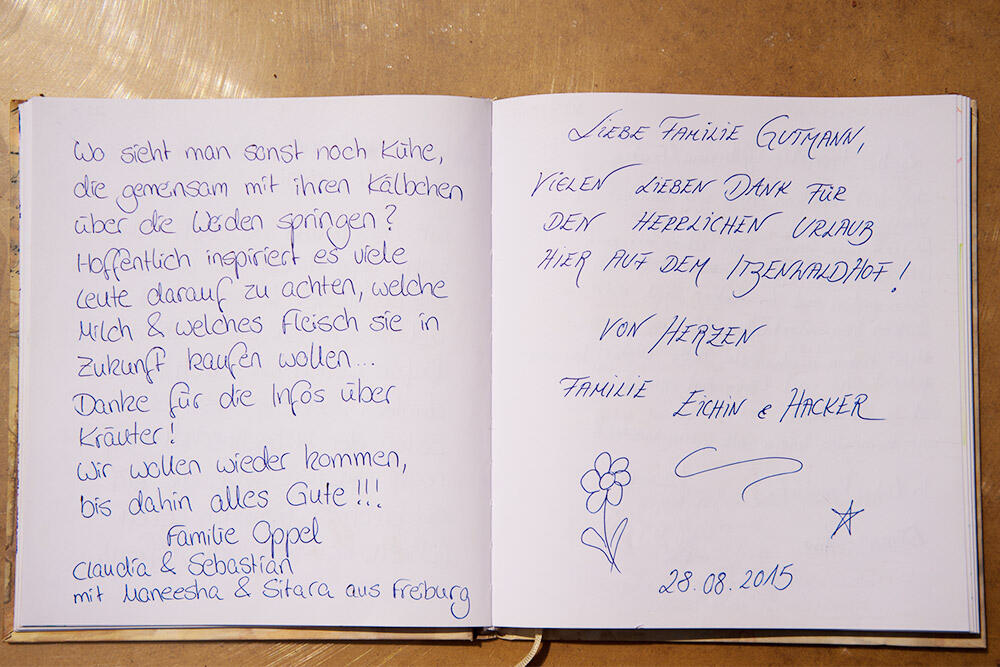 Wo sieht man sonst noch Kühe,
die gemeinsam mit ihren Kälbchen
über die Weiden springen?
Hoffentlich inspiriert es viele
Leute darauf zu achten, welche
Milch & welches Fleisch sie in
Zukunft kaufen wollen...
Danke für die Infos über
Kräuter!
Wir wollen wieder kommen,
bis dahin alles Gute!!!
Familie Oppel
Claudia & Sebastian
mit Maneesha & Sitara aus Freiburg
LIEBE FAMILIE GUTMANN,
VIELEN LIEBEN DANK FÜR
DEN HERRLICHEN URLAUB
HIER AUF DEM ITZENWALDHOF!
VON HERZEN
FAMILIE EICHIN & HACKER
28.08.2015